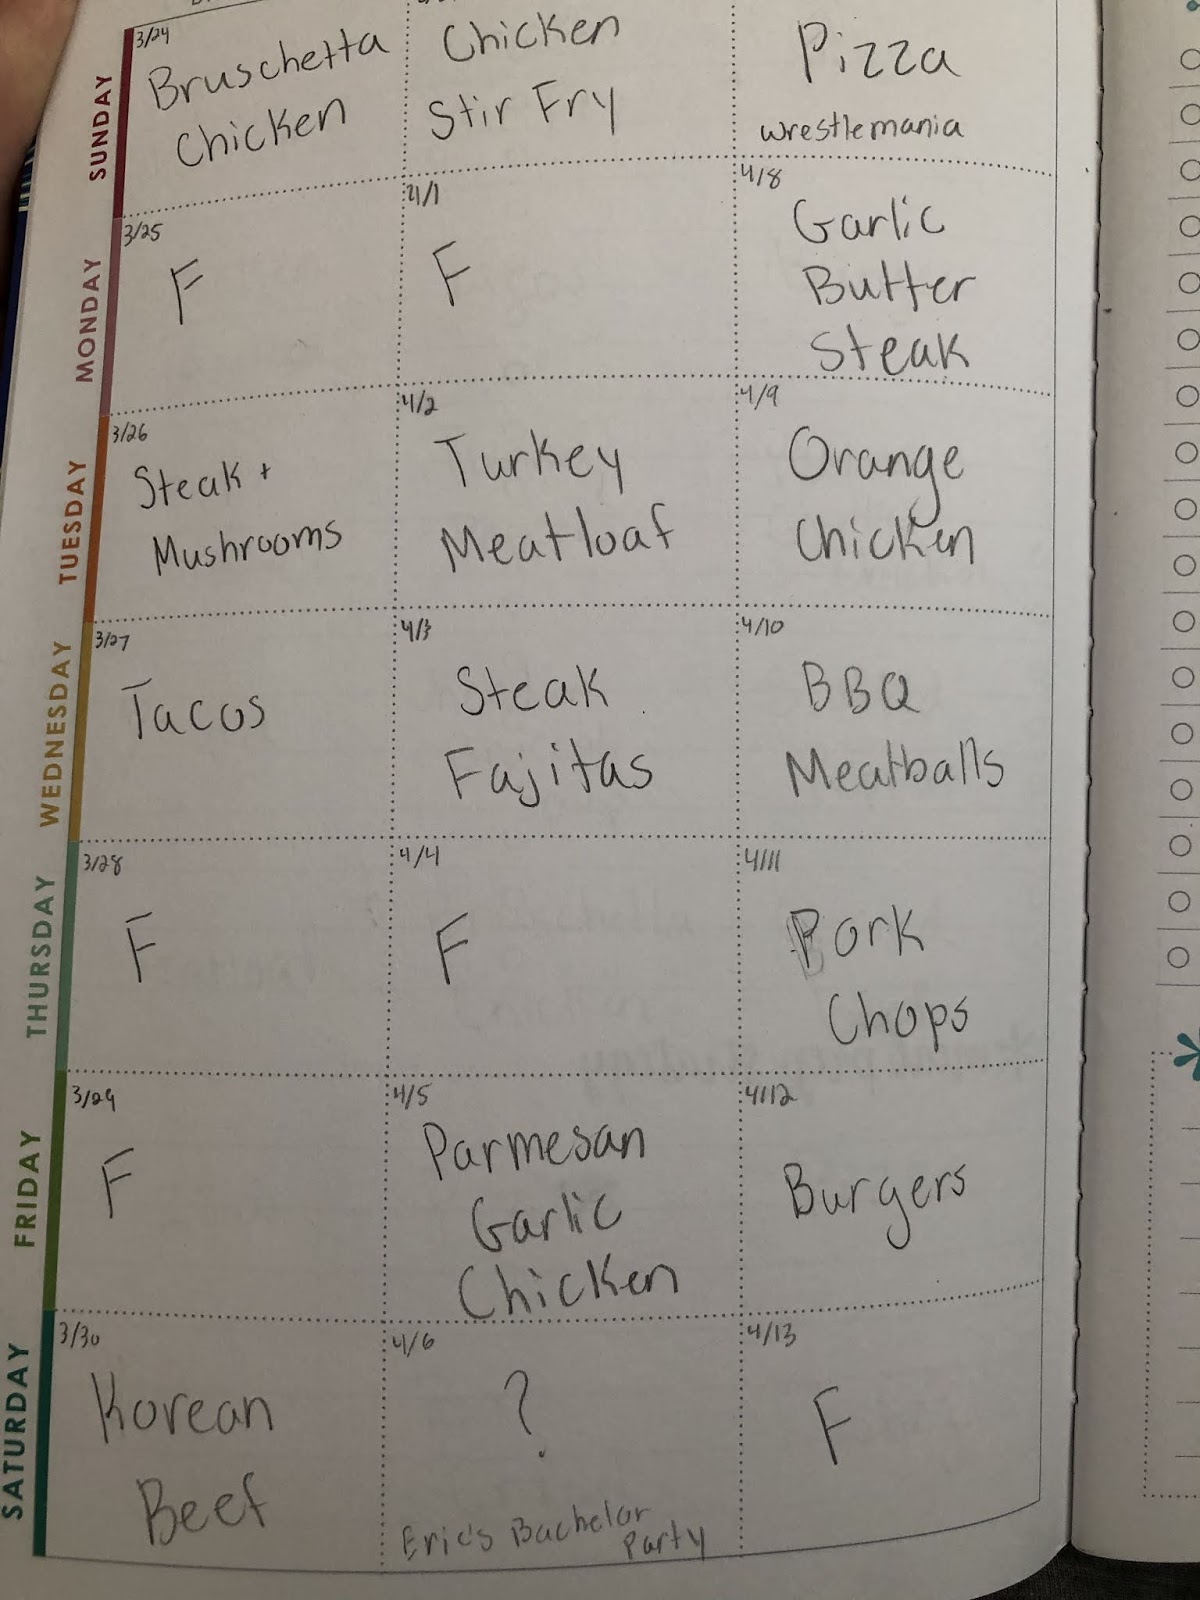 SUNDAY
3/24
Bruschetta
Chicken
Chicken
Stir Fry
Pizza
wrestlemania
MONDAY
3/25
F
4/1
F
4/8
Garlic
Butter
Steak
TUESDAY
3/26
Steak +
Mushrooms
4/2
Turkey
Meatloaf
4/9
Orange
Chicken
WEDNESDAY
3/27
Tacos
4/3
Steak
Fajitas
4/10
BBQ
Meatballs
THURSDAY
3/28
F
4/4
F
4/11
Pork
Chops
FRIDAY
3/29
F
4/5
Parmesan
Garlic
Chicken
4/12
Burgers
SATURDAY
3/30
Korean
Beef
4/6
?
Eric's Bachelor
Party
4/13
F